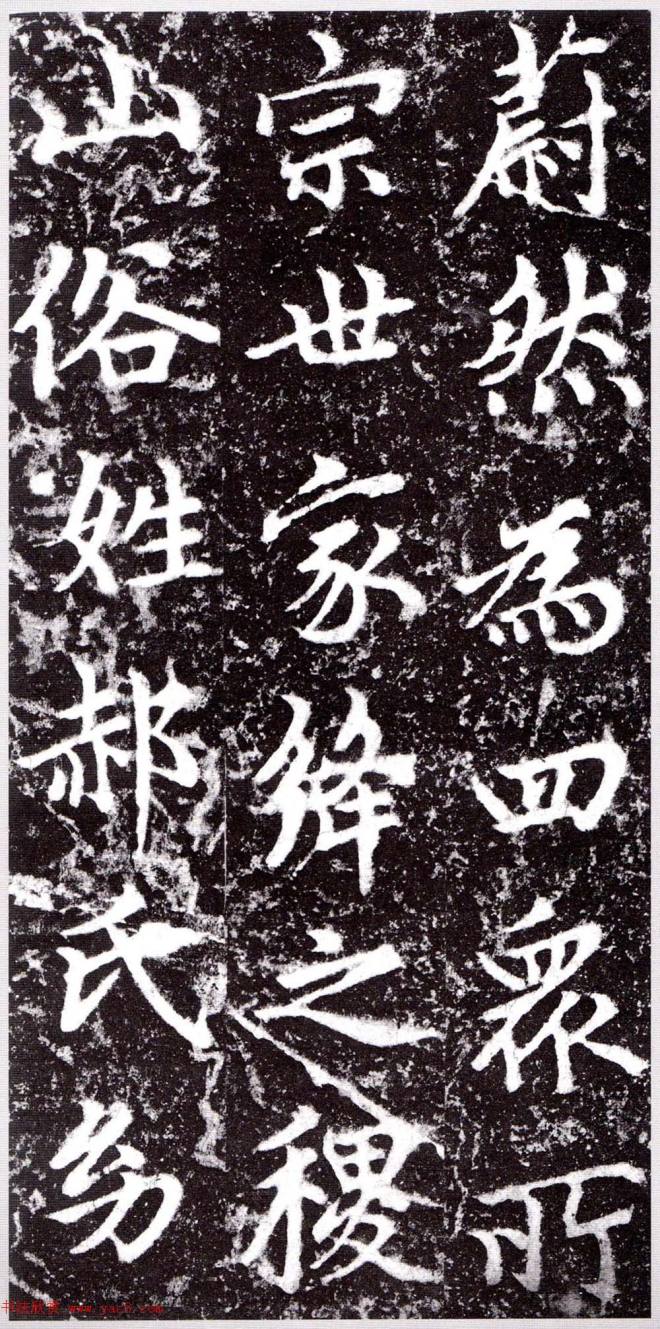 蔚然為四眾所
宗世家絳之稷
山俗姓郝氏幼
书法欣赏 www.yac8.com